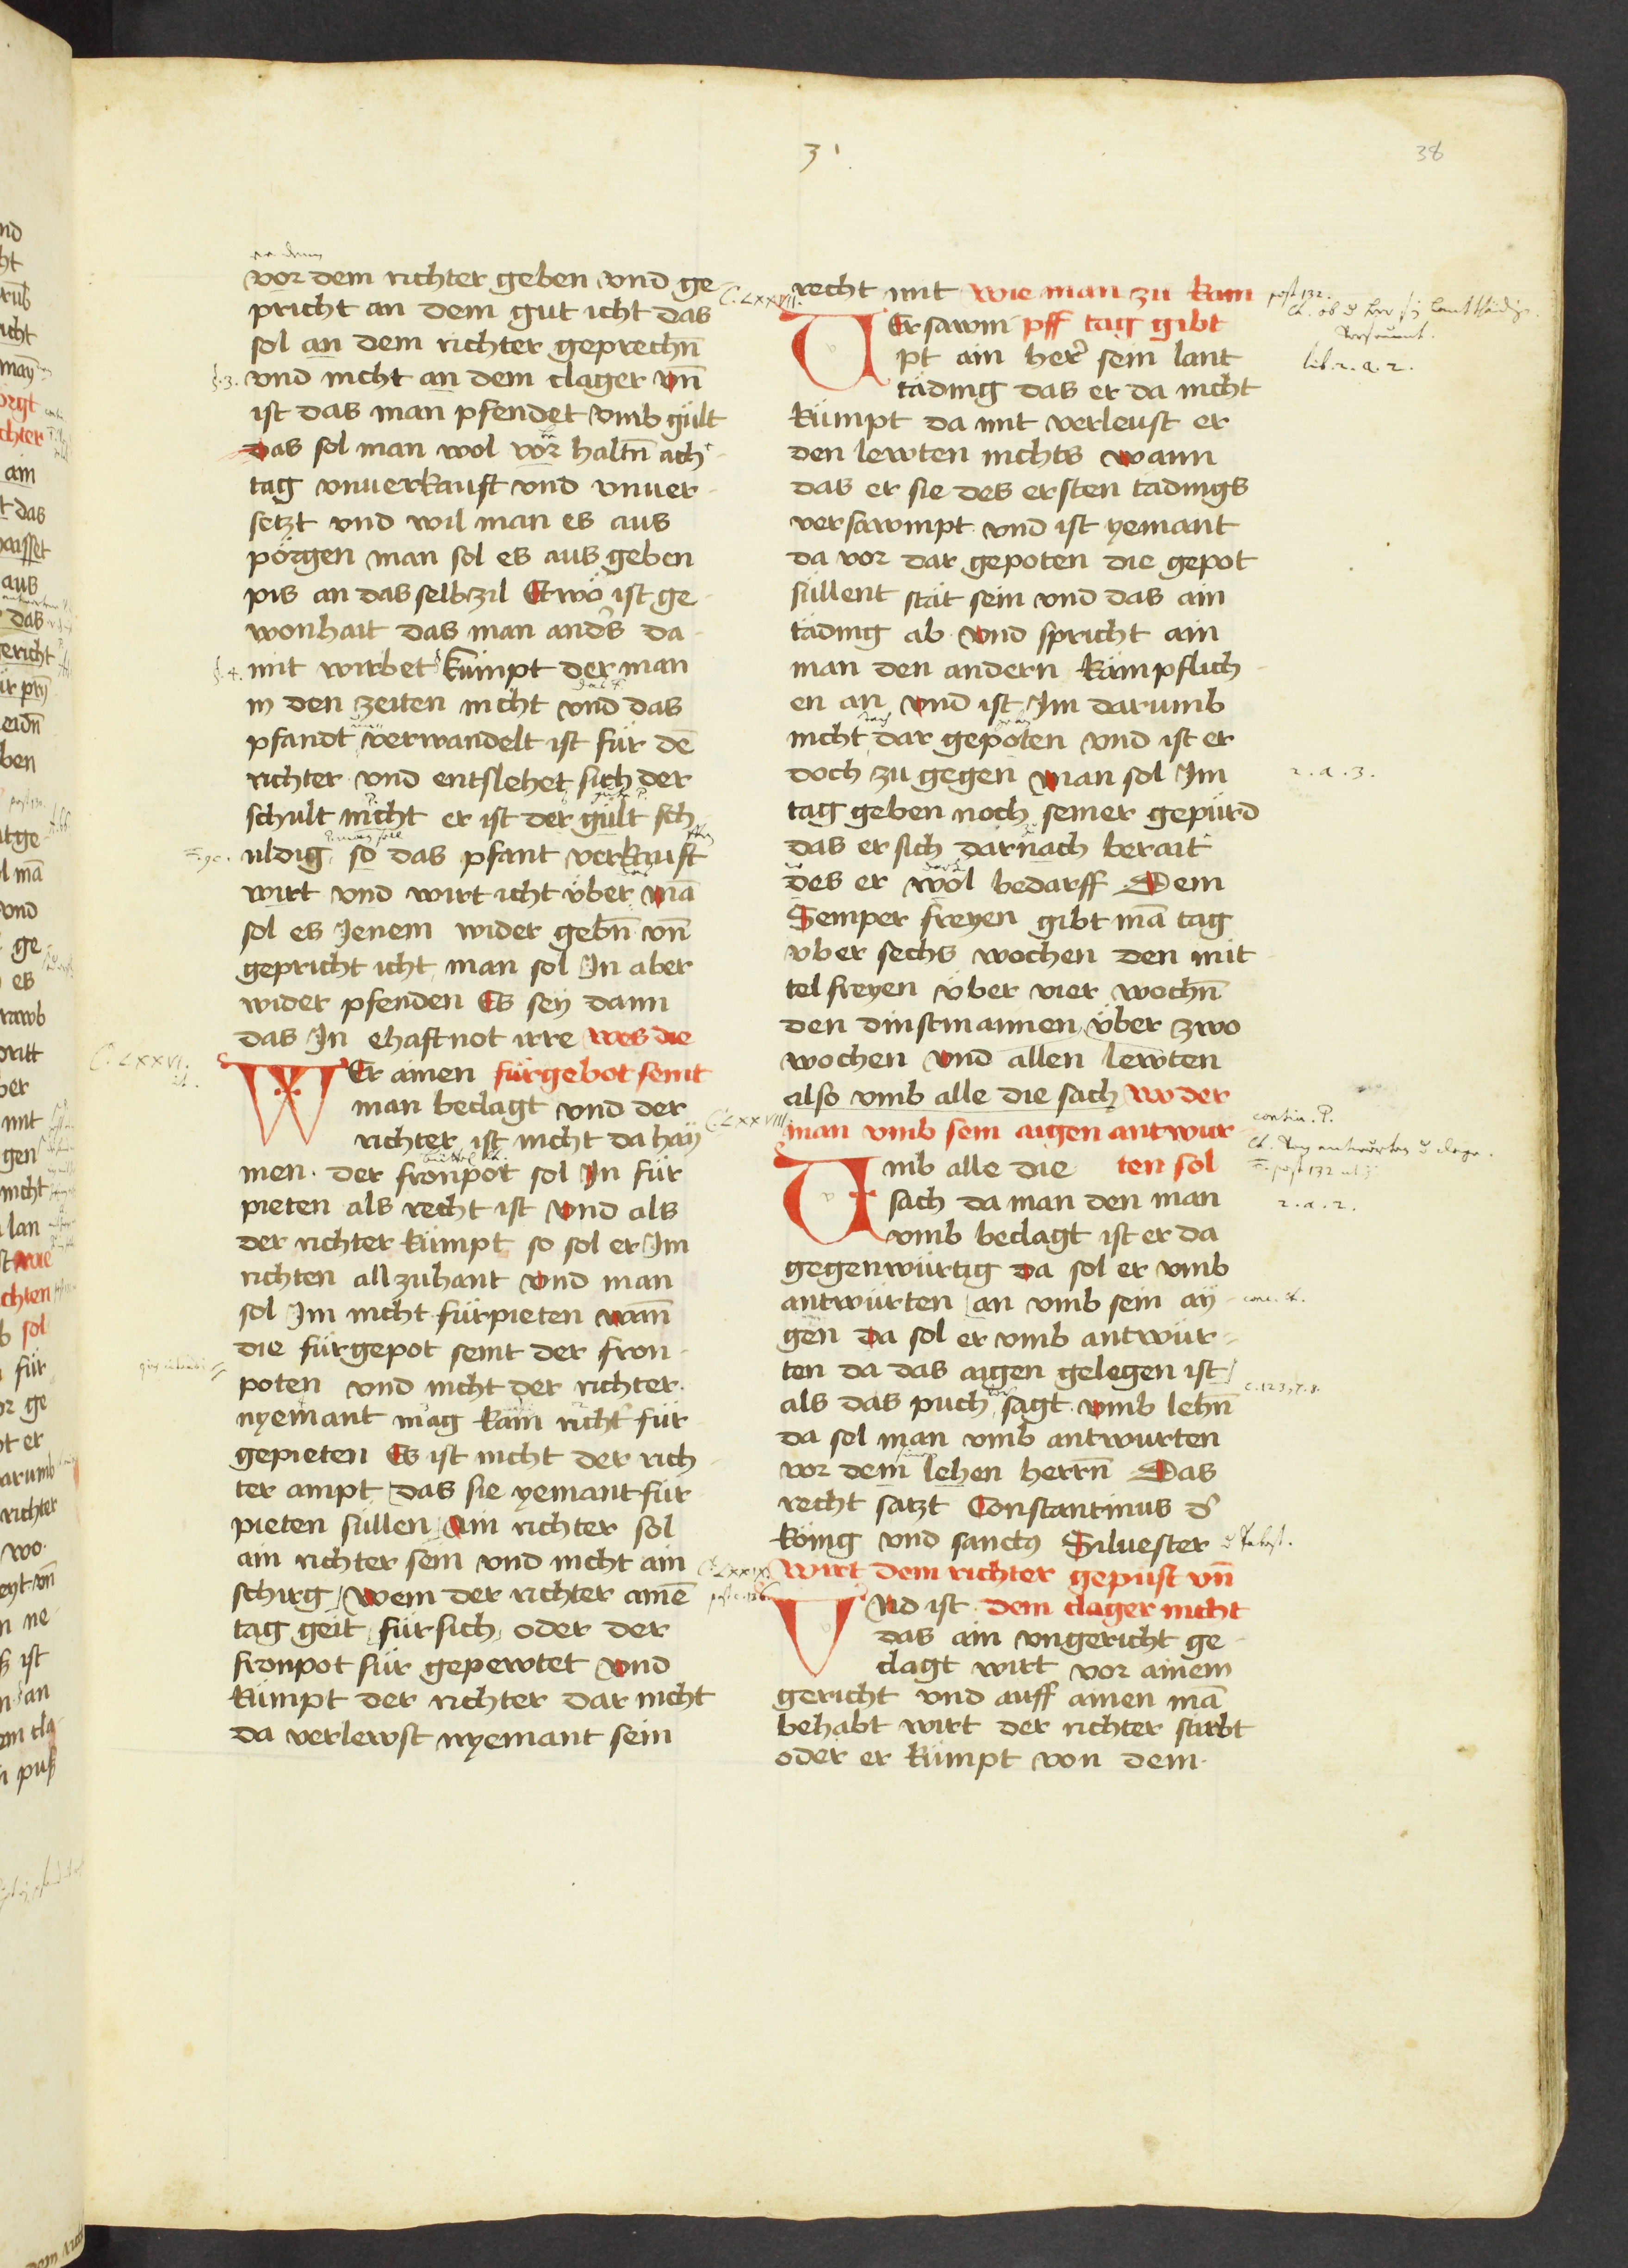 31
38
vor dem richter geben vnd ge
pricht an dem gut icht das
sol an dem richter geprechn̄
§. 3. vnd nicht an dem clager vn̄
ist das man pfendet vmb gült
das sol man wol vor haltn̄ ach
tag vnuerkauft vnd vnuer-
setzt vnd wil man es aus
pörgen man sol es aus geben
pis an das selb zil Etwo ist ge-
wonhait das man anders da-
§. 4. mit wirbet kumpt der man
in den zeiten nicht vnd das
pfandt verwandelt ist für dē
richter vnd entslehet sich der
schult nicht er ist der gült sch
uldig so das pfant verkauft
wirt vnd wirt icht über mā
sol es Jenem wider gebn̄ vn̄
gepricht icht man sol In aber
wider pfenden Es sey dann
das In ehaft not irre wes die
C. LXXVI.
WEr ainen fürgebot seint
man beclagt vnd der
richter ist nicht da hay
men. der fronpot sol In für
pieten als recht ist vnd als
der richter kümpt so sol er Im
richten all zuhant vnd man
sol Im nicht fürpieten wan̄
die fürgepot seint der fron-
poten vnd nicht der richter.
nyemant mag kain richter für
gepieten Es ist nicht der rich
ter ampt das sie yemant für
pieten süllen Ain richter sol
ain richter sein vnd nicht ain
schirg wem der richter ainē
tag geit für sich oder der
fronpot für gepewtet vnd
kümpt der richter dar nicht
da verlewst nyemant sein
C. LXXVII.
recht mit wie man zu kam
VEr sawm pff tag gibt
pt ain her sein lant
täding das er da nicht
kümpt da mit verleust er
den lewten nichts wann
das er sie des ersten tädings
versawmpt vnd ist yemant
da vor dar gepoten die gepot
süllent stät sein vnd das ain
täding ab vnd spricht ain
man den andern kämpflich-
en an vnd ist Im darumb
nicht dar gepoten vnd ist er
doch zu gegen man sol Im
tag geben noch seiner gepürd
das er sich darnach berait
des er wol bedarff Dem
Semper freyen gibt mā tag
vber sechs wochen den mit-
tel freyen über vier wochn̄
den dinstmannen über zwo
wochen vnd allen lewten
also vmb alle die sach wo der
C. LXXVIII.
man vmb sein aigen antwur
Vmb alle die ten sol
sach da man den man
vmb beclagt ist er da
gegenwürtig da sol er vmb
antwürten an vmb sein ay-
gen da sol er vmb antwür-
ten da das aigen gelegen ist
als das puch sagt vmb lehn̄
da sol man vmb antwurten
vor dem lehen herrn̄ Das
recht satzt Constantinus der
König vnd sanctus Siluester
C. LXXIX.
wirt dem richter gepüst vn̄
VNd ist dem clager nicht
das ain vngericht ge-
clagt wirt vor ainem
gericht vnd auff ainen mā
behabt wirt der richter stirbt
oder er kümpt von dem
post 132.
lib. 2. a. 2.
2. a. 3.
contin. P.
2. a. 2.